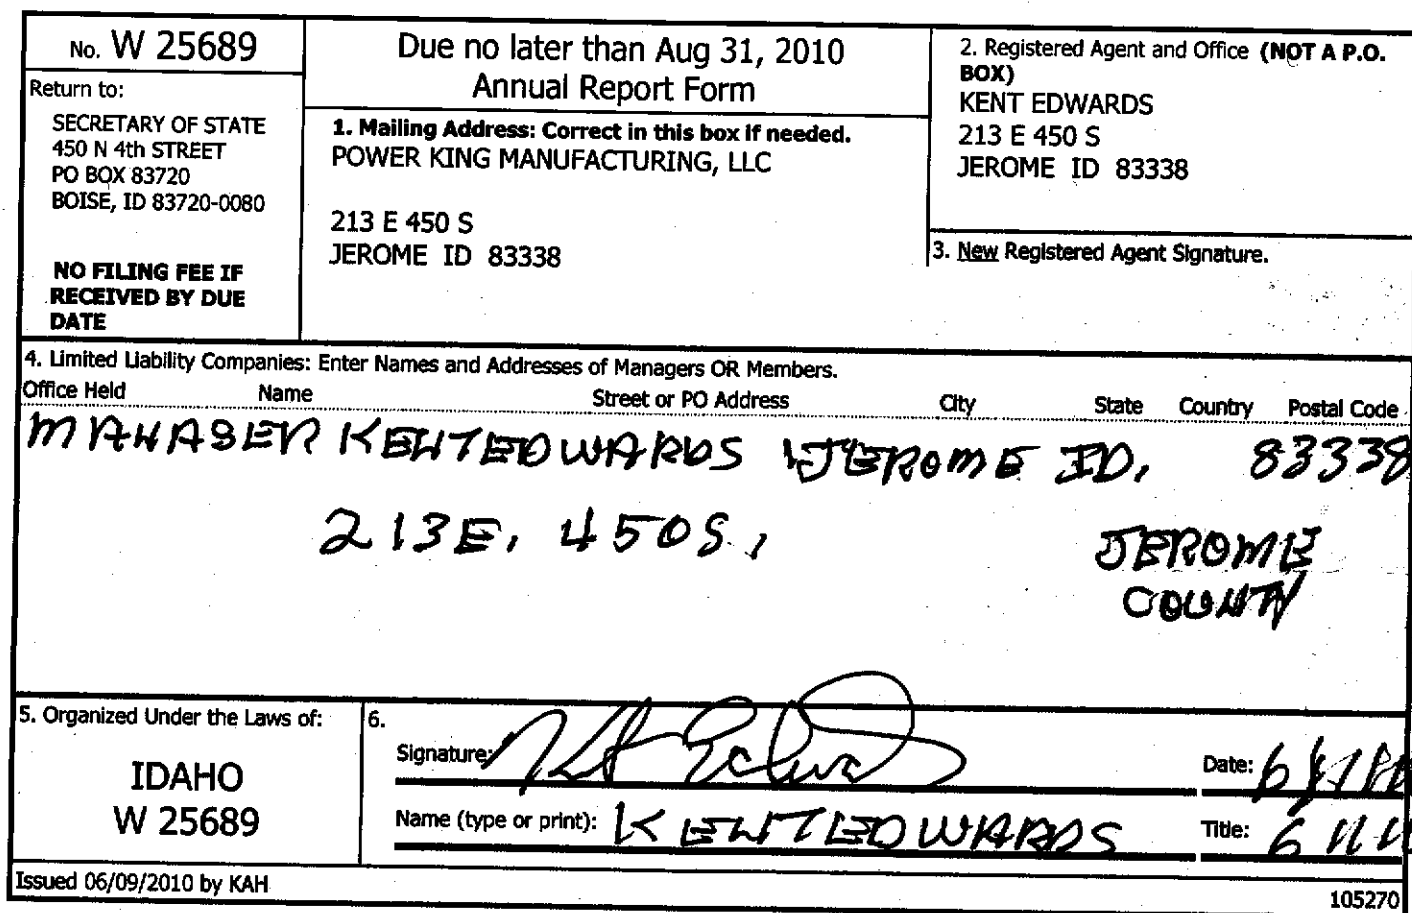 No. W 25689
Return to:
SECRETARY OF STATE
450 N 4th STREET
PO BOX 83720
BOISE, ID 83720-0080
NO FILING FEE IF
RECEIVED BY DUE
DATE
Due no later than Aug 31, 2010
Annual Report Form
1. Mailing Address: Correct in this box if needed.
POWER KING MANUFACTURING, LLC
213 E 450 S
JEROME ID 83338
2. Registered Agent and Office (NOT A P.O.
BOX)
KENT EDWARDS
213 E 450 S
JEROME ID 83338
3. New Registered Agent Signature.
4. Limited Liability Companies: Enter Names and Addresses of Managers OR Members.
Office Held Name Street or PO Address City State Country Postal Code
MANAGER KENT EDWARDS JEROME ID, 83338
213 E, 450 S,
JEROME
COUNTY
5. Organized Under the Laws of:
IDAHO
W 25689
6.
Signature: Kent Edwards
Date:
Name (type or print): KENT EDWARDS
Title:
Issued 06/09/2010 by KAH
105270